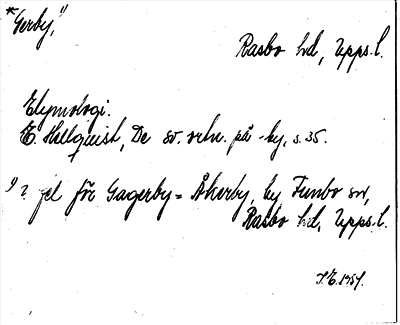 *Gerby,¹⁾
Rasbo hd, Upps. l.
Etymologi.
E. Hellquist, De sv. ortn. på -by, s. 35.
¹⁾ ? fel för Gagerby = Åkerby, by Funbo sn,
Rasbo hd, Upps. l.